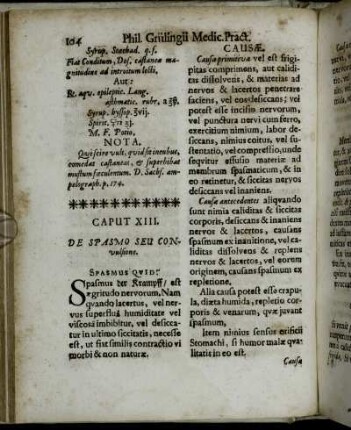 104 Phil. Grülingii Medic. Pract.
Syrup. Stœchad. q. s.
Fiat Conditum, Dos. castaneæ ma-
gnitudine ad introitum lecti,
Aut:
℞. aqv. epileptic. Lang.
asthmatic. rubr. a ʒß.
Syrup. byssop. ʒvij.
Spirit.
M. F. Potio.
NOTA.
Qui scire vult, quid sit incubus,
comedat castaneas, & superbibat
mustum fœculentum. D. Sachs. am-
pelograph. p. 174.
CAPUT XIII.
DE SPASMO SEU CON-
vulsione.
SPASMUS QUID?
Spasmus der Krampff/ est
ægritudo nervorum, Nam
qvando lacertus, vel ner-
vus superflua humiditate vel
viscosa imbibitur, vel desicca-
tur in ultimo siccitatis, necesse
est, ut fiat similis contractio vi
morbi & non naturæ.
CAUSÆ.
Causa primitiva vel est frigi-
pitas comprimens, aut calidi-
tas dissolvens, & materias ad
nervos & lacertos penetrare
faciens, vel eos desiccans; vel
potest esse incisio nervorum,
vel punctura nervi cum ferro,
exercitium nimium, labor de-
siccans, nimius coitus, vel su-
stentatio, vel compressio, unde
seqvitur effusio materiæ ad
membrum spasmaticum, & in
eo retinetur, & siccitas nervos
desiccans vel inaniens.
Causa antecedentes aliqvando
sunt nimia caliditas & siccitas
corporis, desiccans & inaniens
nervos & lacertos, causans
spasmum ex inanitione, vel ca-
liditas dissolvens & replens
nervos & lacertos, vel eorum
originem, causans spasmum ex
repletione.
Alia causa potest esse crapu-
la, diæta humida, repletio cor-
poris & venarum, qvæ juvant
spasmum,
Item nimius sensus orificii
Stomachi, si humor malæ qva-
litatis in eo est.
Causa